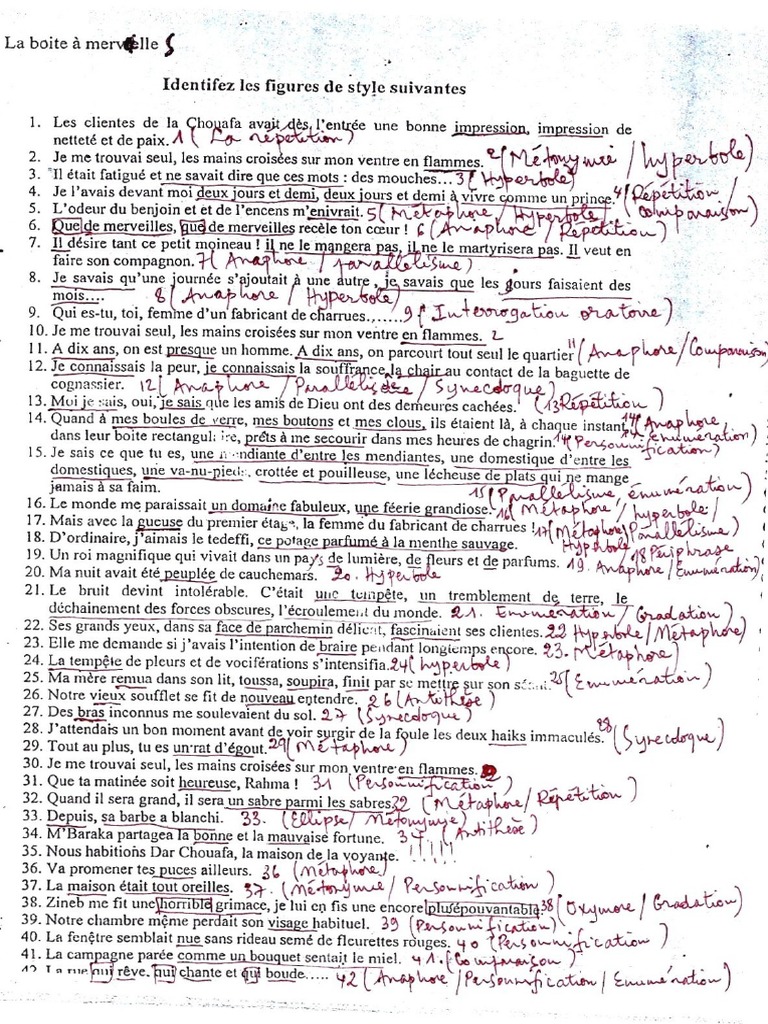 La boite à merveille S
Identifez les figures de style suivantes
1. Les clientes de la Chouafa avait dès l'entrée une bonne impression, impression de
netteté et de paix. 1 ( La répétition)
2. Je me trouvai seul, les mains croisées sur mon ventre en flammes. 2 (Métonymie / hyperbole)
3. Il était fatigué et ne savait dire que ces mots : des mouches... 3 ( Hyperbole)
4. Je l'avais devant moi deux jours et demi, deux jours et demi à vivre comme un prince. 4 (Répétition / comparaison)
5. L'odeur du benjoin et et de l'encens m'enivrait. 5 ( Métaphore / Hyperbole)
6. Que de merveilles, que de merveilles recèle ton cœur ! 6 ( Anaphore / Répétition)
7. Il désire tant ce petit moineau ! il ne le mangera pas, il ne le martyrisera pas. Il veut en
faire son compagnon. 7 ( Anaphore / parallélisme )
8. Je savais qu'une journée s'ajoutait à une autre , je savais que les jours faisaient des
mois.... 8 ( Anaphore / Hyperbole)
9. Qui es-tu, toi, femme d'un fabricant de charrues........ 9 ( Interrogation oratoire)
10. Je me trouvai seul, les mains croisées sur mon ventre en flammes. 2
11. A dix ans, on est presque un homme. A dix ans, on parcourt tout seul le quartier 11 (Anaphore/Comparaison)
12. Je connaissais la peur, je connaissais la souffrance, la chair au contact de la baguette de
cognassier. 12 ( Anaphore / Parallélisme / Synecdoque)
13. Moi je sais, oui, je sais que les amis de Dieu ont des demeures cachées. (13 Répétition )
14. Quand à mes boules de verre, mes boutons et mes clous, ils étaient là, à chaque instant, 14 (Anaphore,
dans leur boite rectangulaire, prêts à me secourir dans mes heures de chagrin. 14 (Personnification) énumération)
15. Je sais ce que tu es, une mendiante d'entre les mendiantes, une domestique d'entre les
domestiques, une va-nu-pieds, crottée et pouilleuse, une lécheuse de plats qui ne mange
jamais à sa faim. 15 ( Parallélisme, énumération)
16. Le monde me paraissait un domaine fabuleux, une féerie grandiose. 16 ( Métaphore / hyperbole)
17. Mais avec la gueuse du premier étage, la femme du fabricant de charrues ! 17 (Métaphore/Parallélisme)
18. D'ordinaire, j'aimais le tedeffi, ce potage parfumé à la menthe sauvage. Hyperbole 18 Périphrase
19. Un roi magnifique qui vivait dans un pays de lumière, de fleurs et de parfums. 19. Anaphore /Enumération)
20. Ma nuit avait été peuplée de cauchemars. 20. Hyperbole
21. Le bruit devint intolérable. C'était une tempête, un tremblement de terre, le
déchainement des forces obscures, l'écroulement du monde. 21. Enumération / Gradation)
22. Ses grands yeux, dans sa face de parchemin délicat, fascinaient ses clientes. 22 Hyperbole / Métaphore)
23. Elle me demande si j'avais l'intention de braire pendant longtemps encore. 23. Métaphore)
24. La tempête de pleurs et de vociférations s'intensifia. 24 ( hyperbole)
25. Ma mère remua dans son lit, toussa, soupira, finit par se mettre sur son séant. 25 ( Enumération)
26. Notre vieux soufflet se fit de nouveau entendre. 26 (Antithèse)
27. Des bras inconnus me soulevaient du sol. 27 (Synecdoque)
28. J'attendais un bon moment avant de voir surgir de la foule les deux haiks immaculés. 28 (Synecdoque)
29. Tout au plus, tu es un rat d'égout. 29 ( Métaphore)
30. Je me trouvai seul, les mains croisées sur mon ventre en flammes. 2
31. Que ta matinée soit heureuse, Rahma ! 31 (Personnification )
32. Quand il sera grand, il sera un sabre parmi les sabres 32 (Métaphore/ Répétition )
33. Depuis, sa barbe a blanchi. 33. (Ellipse/ Métonymie)
34. M'Baraka partagea la bonne et la mauvaise fortune. 34 (Antithèse)
35. Nous habitions Dar Chouafa, la maison de la voyante. !!!!
36. Va promener tes puces ailleurs. 36 (Métaphore)
37. La maison était tout oreilles. 37. (Métonymie / Personnification )
38. Zineb me fit une horrible grimace, je lui en fis une encore plusépouvantable 38 (Oxymore / Gradation)
39. Notre chambre même perdait son visage habituel. 39 (Personnification)
40. La fenêtre semblait nue sans rideau semé de fleurettes rouges. 40 (Personnification )
41. La campagne parée comme un bouquet sentait le miel. 41. (Comparaison )
42. La rue qui rêve, qui chante et qui boude..... 42 ( Anaphore /Personnification / Enumération)